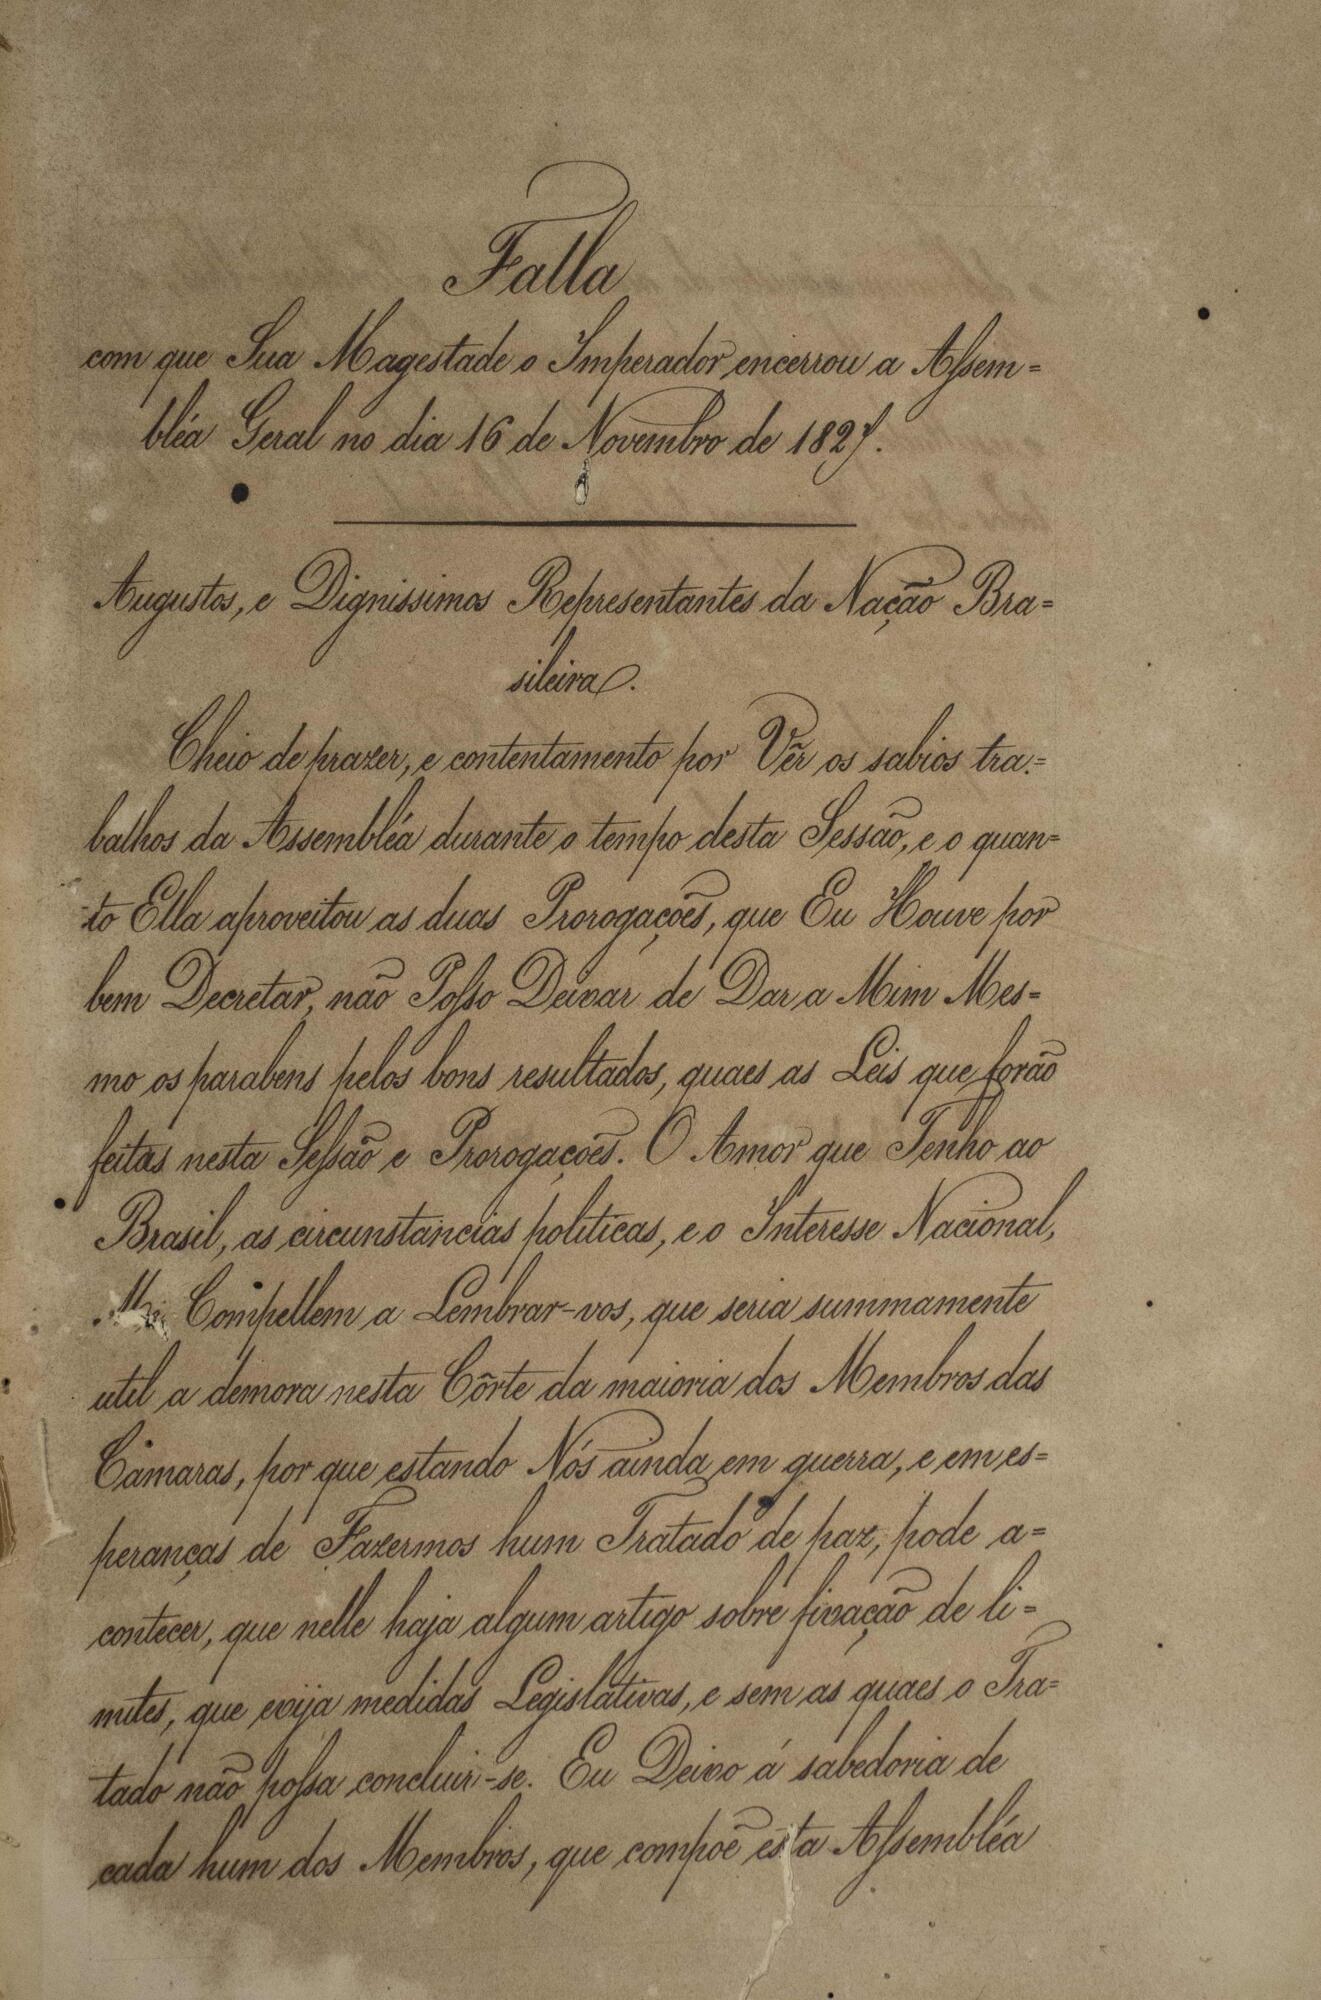 Falla
com que Sua Magestade o Imperador encerrou a Assem=
bléa Geral no dia 16 de Novembro de 1827.
Augustos, e Dignissimos Representantes da Nação Bra=
sileira.
Cheio de prazer, e contentamento por Vêr os sabios tra=
balhos da Assembléa durante o tempo desta Sessão, e o quan=
to Ella aproveitou as duas Prorogações, que Eu Houve por
bem Decretar, não Posso Deixar de Dar a Mim Mes=
mo os parabens pelos bons resultados, quaes as Leis que forão
feitas nesta Sessão e Prorogações. O Amor que Tenho ao
Brasil, as circunstancias politicas, e o Interesse Nacional,
Me Compellem a Lembrar-vos, que seria summamente
util a demora nesta Côrte da maioria dos Membros das
Câmaras, por que estando Nós ainda em guerra, e em es=
peranças de Fazermos hum Tratado de paz, pode a=
contecer, que nelle haja algum artigo sobre fixação de li=
mites, que exija medidas Legislativas, e sem as quaes o Tra=
tado não possa concluir-se. Eu Deixo á sabedoria de
cada hum dos Membros, que compõe esta Assembléa